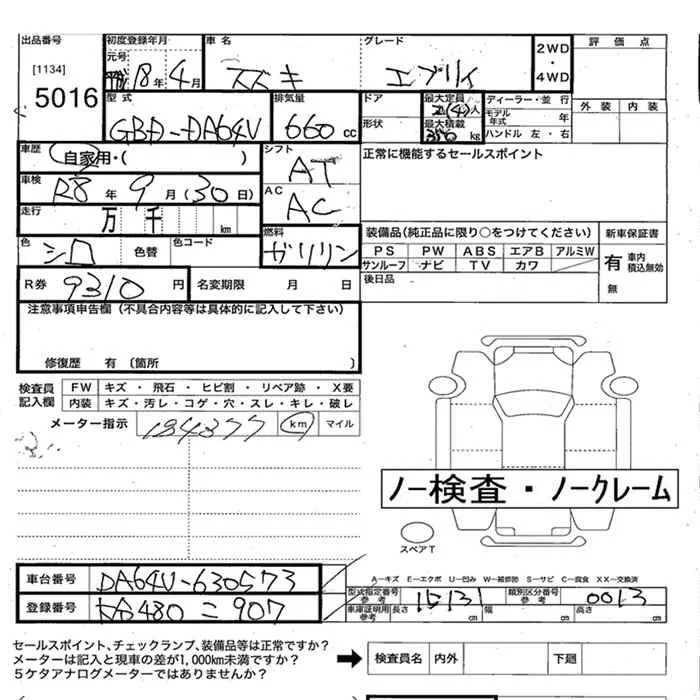 出品番号 初度登録年月 車名 グレード 2WD・4WD 評価点
[1134] 5016 元号 18年4月 スズキ エブリイ
型式 排気量 ドア 最大定員 2(4)人 ディーラー・並行 外装 内装
GBD-DA64V 660cc 形状 最大積載 350kg モデル年式 年
ハンドル 左・右
車歴 自家用・( ) シフト AT 正常に機能するセールスポイント
車検 R8年9月(30日) AC AC
走行 万 千 km 燃料 ガソリン 装備品(純正品に限り○をつけてください) 新車保証書
色 シロ 色替 色コード PS PW ABS エアB アルミW 有 車内積込無効
サンルーフ ナビ TV カワ 無
R券 9310円 名変期限 月 日 後日品
注意事項申告欄(不具合内容等は具体的に記入して下さい)
修復歴 有 〔箇所 〕
検査員記入欄 FW キズ・飛石・ヒビ割・リペア跡・X要
内装 キズ・汚レ・コゲ・穴・スレ・キレ・破レ
メーター指示 184377 km マイル
ノー検査・ノークレーム
スペアT
車台番号 DA64V-630573 A―キズ E―エクボ U―凹み W―補修跡 S―サビ C―腐食 XX―交換済
登録番号 480 907 型式指定番号 参考 15131 類別区分番号 参考 0013
車庫証明用参考 長さ cm 幅 cm 高さ cm
セールスポイント、チェックランプ、装備品等は正常ですか?
メーターは記入と現車の差が1,000km未満ですか? 検査員名 内外 下廻
5ケタアナログメーターではありませんか?